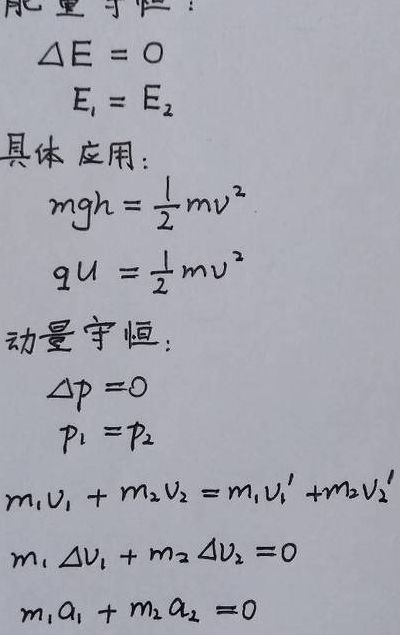 能量守恒:
ΔE = 0
E₁ = E₂
具体应用:
mgh = ½mv²
qU = ½mv²
动量守恒:
Δp = 0
p₁ = p₂
m₁v₁ + m₂v₂ = m₁v₁′ + m₂v₂′
m₁Δv₁ + m₂Δv₂ = 0
m₁a₁ + m₂a₂ = 0